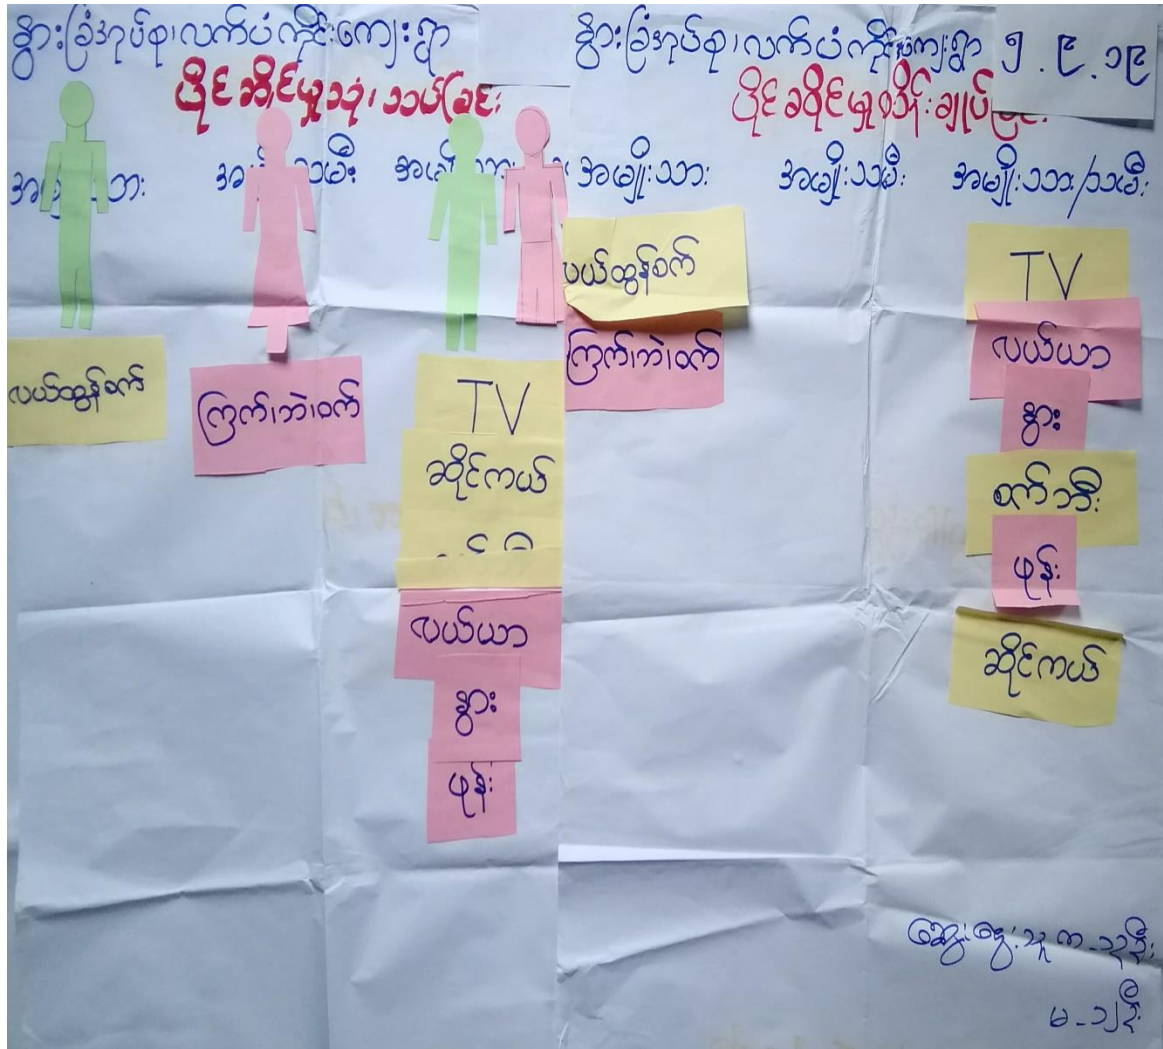 နွားခြံအုပ်စု၊လက်ပံကိုင်းကျေးရွာ
ပိုင်ဆိုင်မှုသုံးသပ်ခြင်း
အမျိုးသမီး
လယ်ထွန်စက်
ကြက်၊ဘဲ၊ဝက်
TV
ဆိုင်ကယ်
လယ်ယာ
နွား
ဖုန်း
နွားခြံအုပ်စု၊လက်ပံကိုင်းကျေးရွာ
၅.၉.၁၉
ပိုင်ဆိုင်မှုထိန်းချုပ်ခြင်း
အမျိုးသား အမျိုးသမီး အမျိုးသား/သမီး
လယ်ထွန်စက်
ကြက်၊ဘဲ၊ဝက်
TV
လယ်ယာ
နွား
စက်ဘီး
ဖုန်း
ဆိုင်ကယ်
ဆွေးနွေးသူ
မ-၁၂ဦး